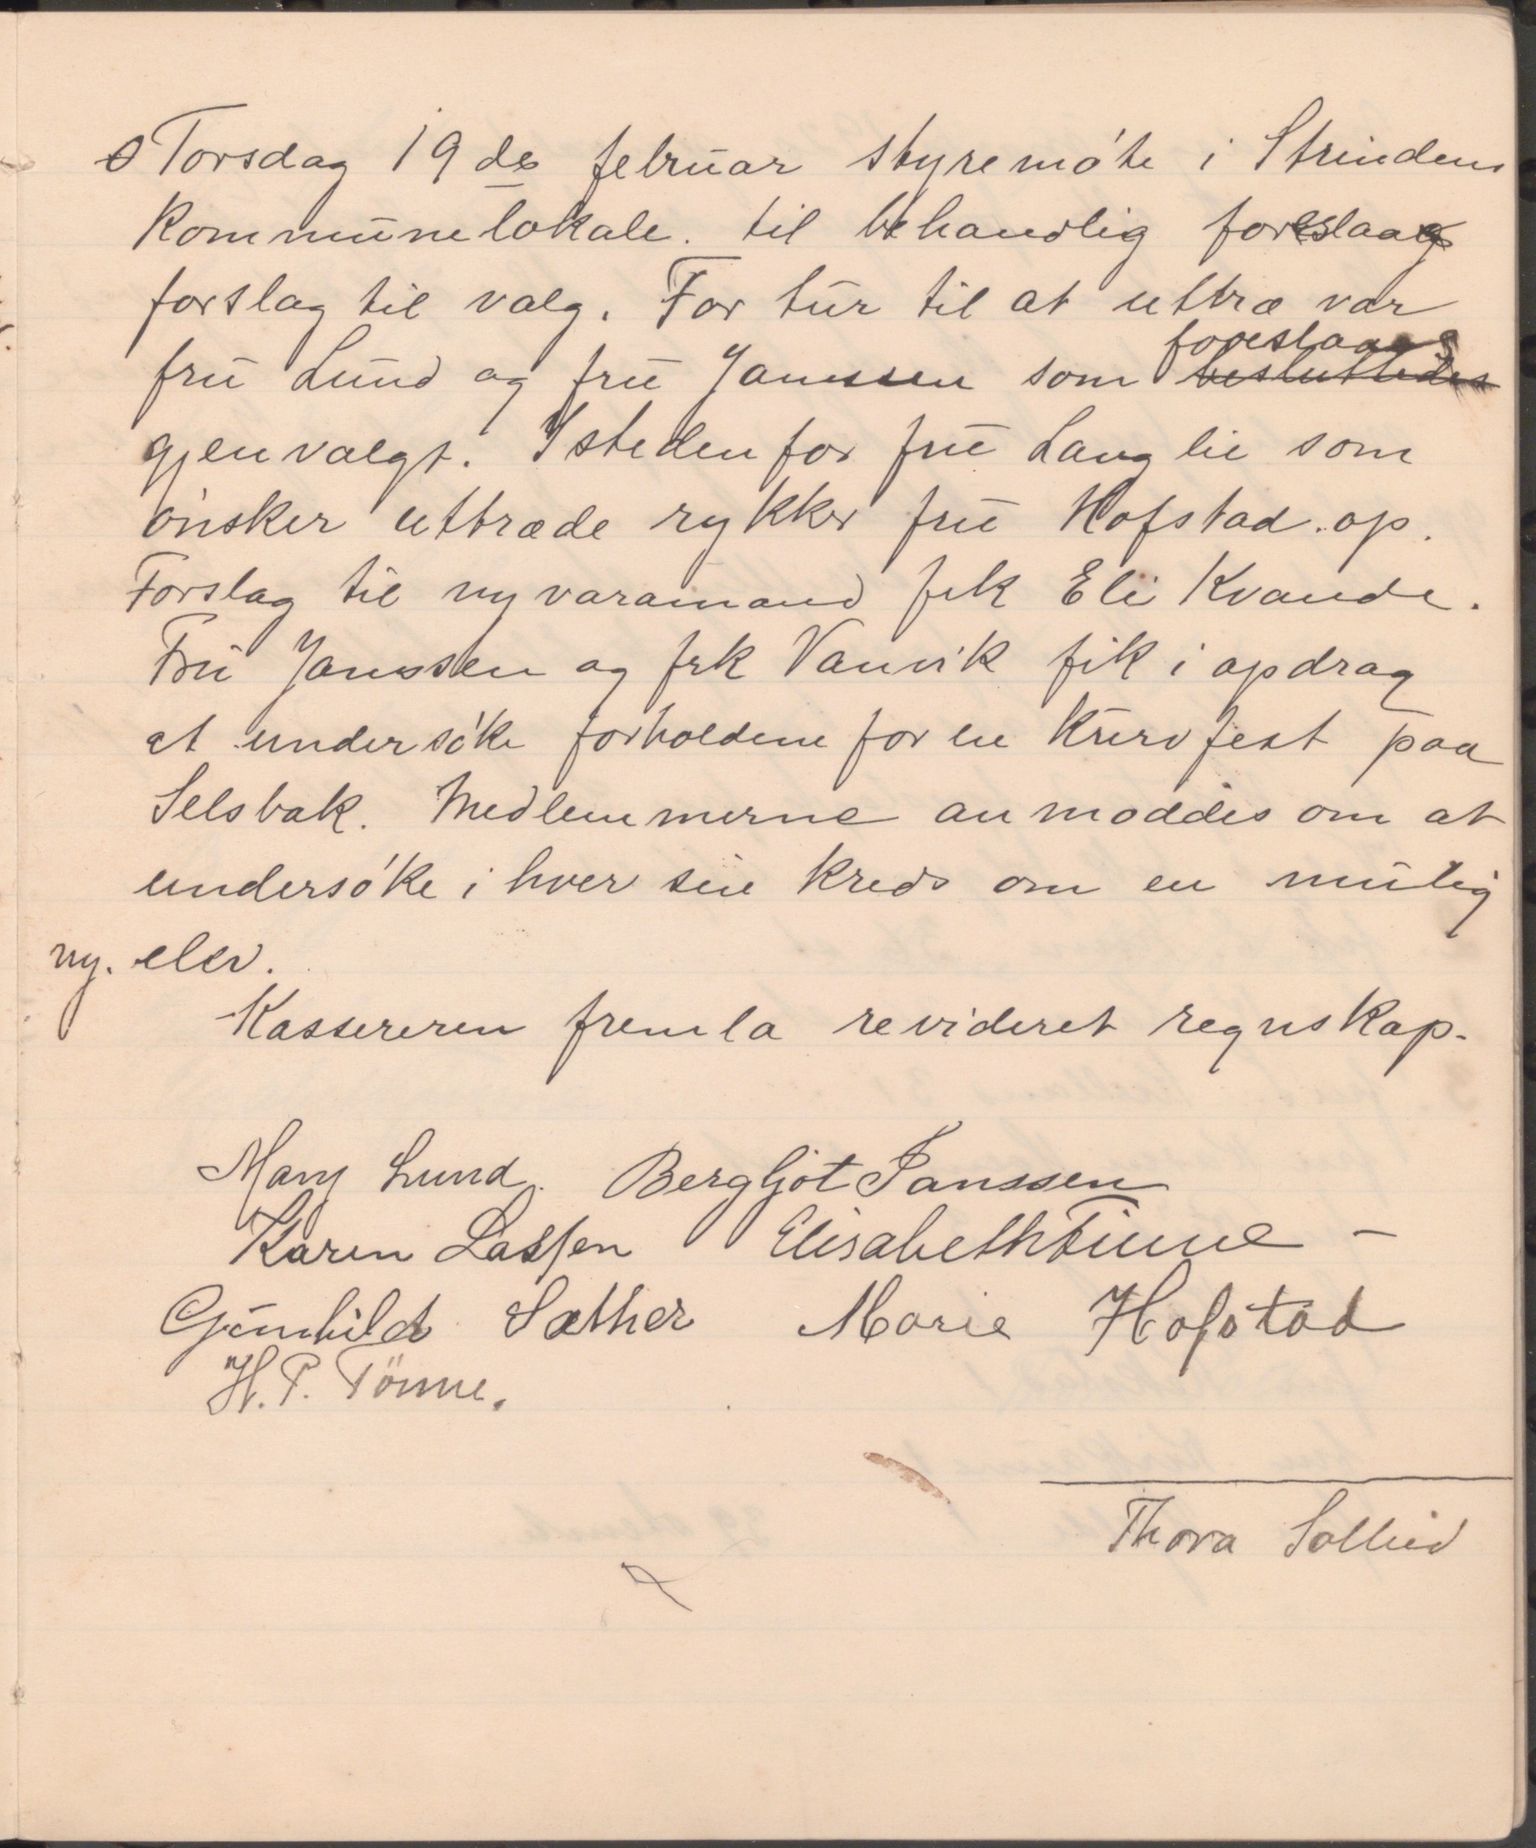 Torsdag 19de februar styremøte i Strindens
kommunelokale. til behandlig foreslaag
forslag til valg. For tur til at uttræ var
foreslaaes
fru Lund og fru Janssen som besluttedes
gjenvalgt. Isteden for fru Langlie som
ønsker uttræde rykker fru Hofstad op.
Forslag til ny varamand fek Eli Kvande.
Fru Janssen og frk Vanvik fik i opdrag
at undersøke forholdene for en Kurvfest paa
Selsbak. Medlemmerne anmoddes om at
undersøke i hver sin kreds om en mulig
ny. elev.
Kassereren fremla revideret regnskap.
Mary Lund. Bergljot Janssen
Karen Lassen Elisabeth Finne –
Gunhild Sæther Marie Hofstad
H. P. Tönne.
Thora Sollied